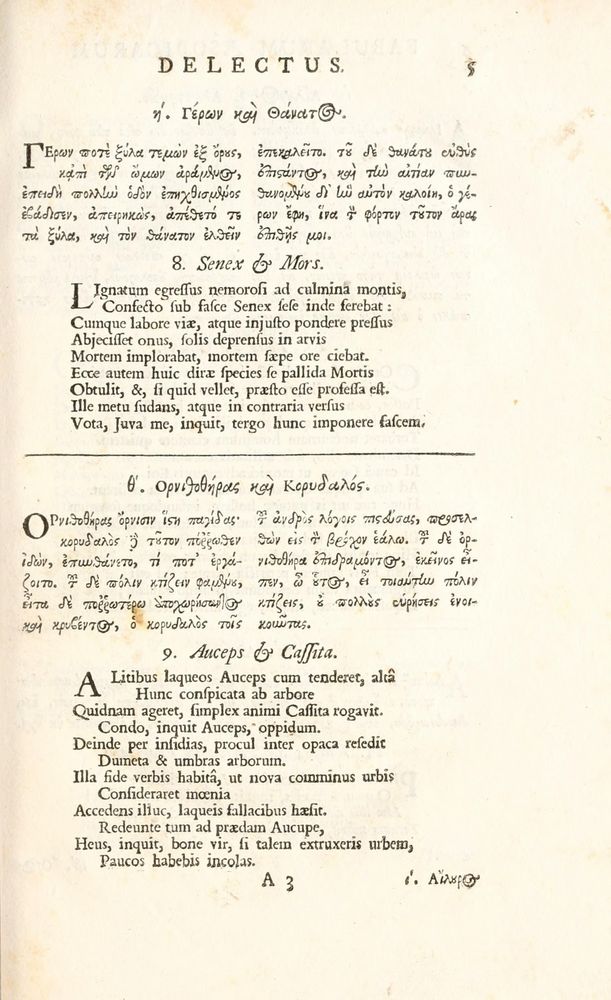 DELECTUS. 5
η΄. Γέρων καὶ Θάνατος.
ΓΕρων ποτὲ ξύλα τεμὼν ἐξ ὄρους,
κἀπὶ τῶν ὤμων ἀράμενος,
ἐπειδὴ πολλὴν ὁδὸν ἐπηχθισμένος
ἐβάδισεν, ἀπειρηκὼς, ἀπέθετό τε
τὰ ξύλα, καὶ τὸν θάνατον ἐλθεῖν
ἐπεκαλεῖτο. τοῦ δὲ θανάτου εὐθὺς
ἐπιστάντος, καὶ τὴν αἰτίαν πυν-
θανομένου δι' ἣν αὐτὸν καλοίη, ὁ γέ-
ρων ἔφη, ἵνα τὸν φόρτον τοῦτον ἄρας
ἐπιθῇς μοι.
8. Senex & Mors.
LIgnatum egressus nemorosi ad culmina montis,
Confecto sub fasce Senex sese inde ferebat:
Cumque labore viæ, atque injusto pondere pressus
Abjecisset onus, solis deprensus in arvis
Mortem implorabat, mortem sæpe ore ciebat.
Ecce autem huic diræ species se pallida Mortis
Obtulit, &, si quid vellet, præsto esse professa est.
Ille metu sudans, atque in contraria versus
Vota, Juva me, inquit, tergo hunc imponere fascem.
θ΄. Ορνιθοθήρας καὶ Κορυδαλός.
ΟΡνιθοθήρας ὄρνισιν ἵστη παγίδας·
κορυδαλὸς δὲ τοῦτον πόῤῥωθεν
ἰδὼν, ἐπυνθάνετο, τί ποτ' ἐργά-
ζοιτο. τοῦ δὲ πόλιν κτίζειν φαμένου,
εἶτα δὲ ποῤῥωτέρω ὑποχωρήσαντος
καὶ κρυβέντος, ὁ κορυδαλὸς τοῖς
τοῦ ἀνδρὸς λόγοις πιστεύσας, προσελ-
θὼν εἰς τὸν βρόχον ἑάλω. τοῦ δὲ ὀρ-
νιθοθήρα ἐπιδραμόντος, ἐκεῖνος εἶ-
πεν, ὦ οὗτος, εἰ τοιαύτην πόλιν
κτίζεις, οὐ πολλοὺς εὑρήσεις ἐνοι-
κοῦντας.
9. Auceps & Cassita.
ALitibus laqueos Auceps cum tenderet, altâ
Hunc conspicata ab arbore
Quidnam ageret, simplex animi Cassita rogavit.
Condo, inquit Auceps, oppidum.
Deinde per insidias, procul inter opaca resedit
Dumeta & umbras arborum.
Illa fide verbis habitâ, ut nova comminus urbis
Consideraret mœnia
Accedens illuc, laqueis fallacibus hæsit.
Redeunte tum ad prædam Aucupe,
Heus, inquit, bone vir, si talem extruxeris urbem,
Paucos habebis incolas.
A 3 ι΄. Αἴλουρος